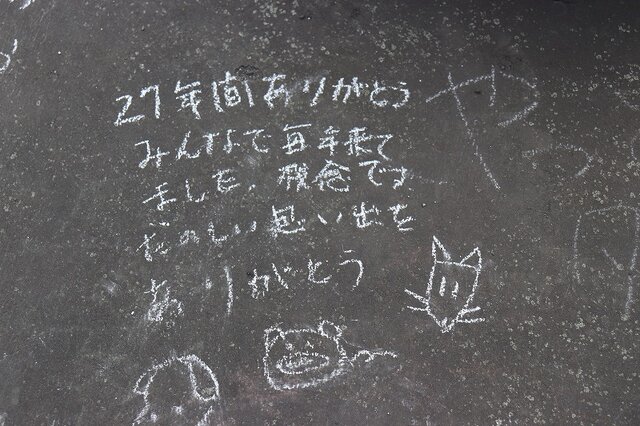 27年間ありがとう
みんなで毎年来て
ました。残念です
たのしい思い出を
ありがとう
やっ